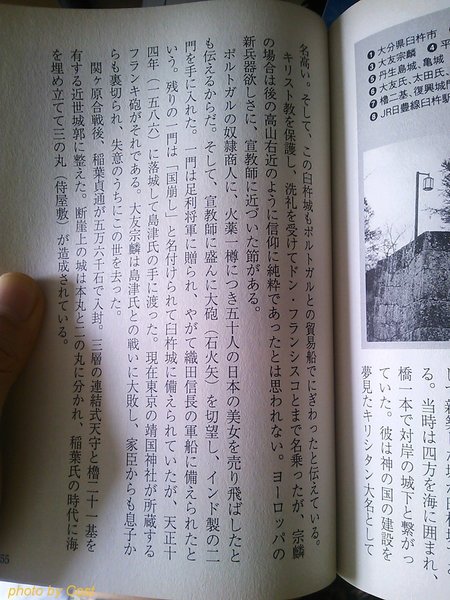 ❶大分県臼杵市
❸大友宗麟 ❹平
❺丹生島城、亀城
❻大友氏、太田氏、
❼櫓二基、復興城門
❽JR日豊線臼杵駅
る。当時は四方を海に囲まれ、
橋一本で対岸の城下と繋がっ
ていた。彼は神の国の建設を
夢見たキリシタン大名として
名高い。そして、この臼杵城もポルトガルとの貿易船でにぎわったと伝えている。
キリスト教を保護し、洗礼を受けてドン・フランシスコとまで名乗ったが、宗麟
の場合は後の高山右近のように信仰に純粋であったとは思われない。ヨーロッパの
新兵器欲しさに、宣教師に近づいた節がある。
ポルトガルの奴隷商人に、火薬一樽につき五十人の日本の美女を売り飛ばしたと
も伝えるからだ。そして、宣教師に盛んに大砲(石火矢)を切望し、インド製の二
門を手に入れた。一門は足利将軍に贈られ、やがて織田信長の軍船に備えられたと
いう。残りの一門は「国崩し」と名付けられて臼杵城に備えられていたが、天正十
四年(一五八六)に落城して島津氏の手に渡った。現在東京の靖国神社が所蔵する
フランキ砲がそれである。大友宗麟は島津氏との戦いに大敗し、家臣からも息子か
らも裏切られ、失意のうちにこの世を去った。
関ヶ原合戦後、稲葉貞通が五万六千石で入封。三層の連結式天守と櫓二十一基を
有する近世城郭に整えた。断崖上の城は本丸と二の丸に分かれ、稲葉氏の時代に海
を埋め立てて三の丸(侍屋敷)が造成されている。
55
photo by